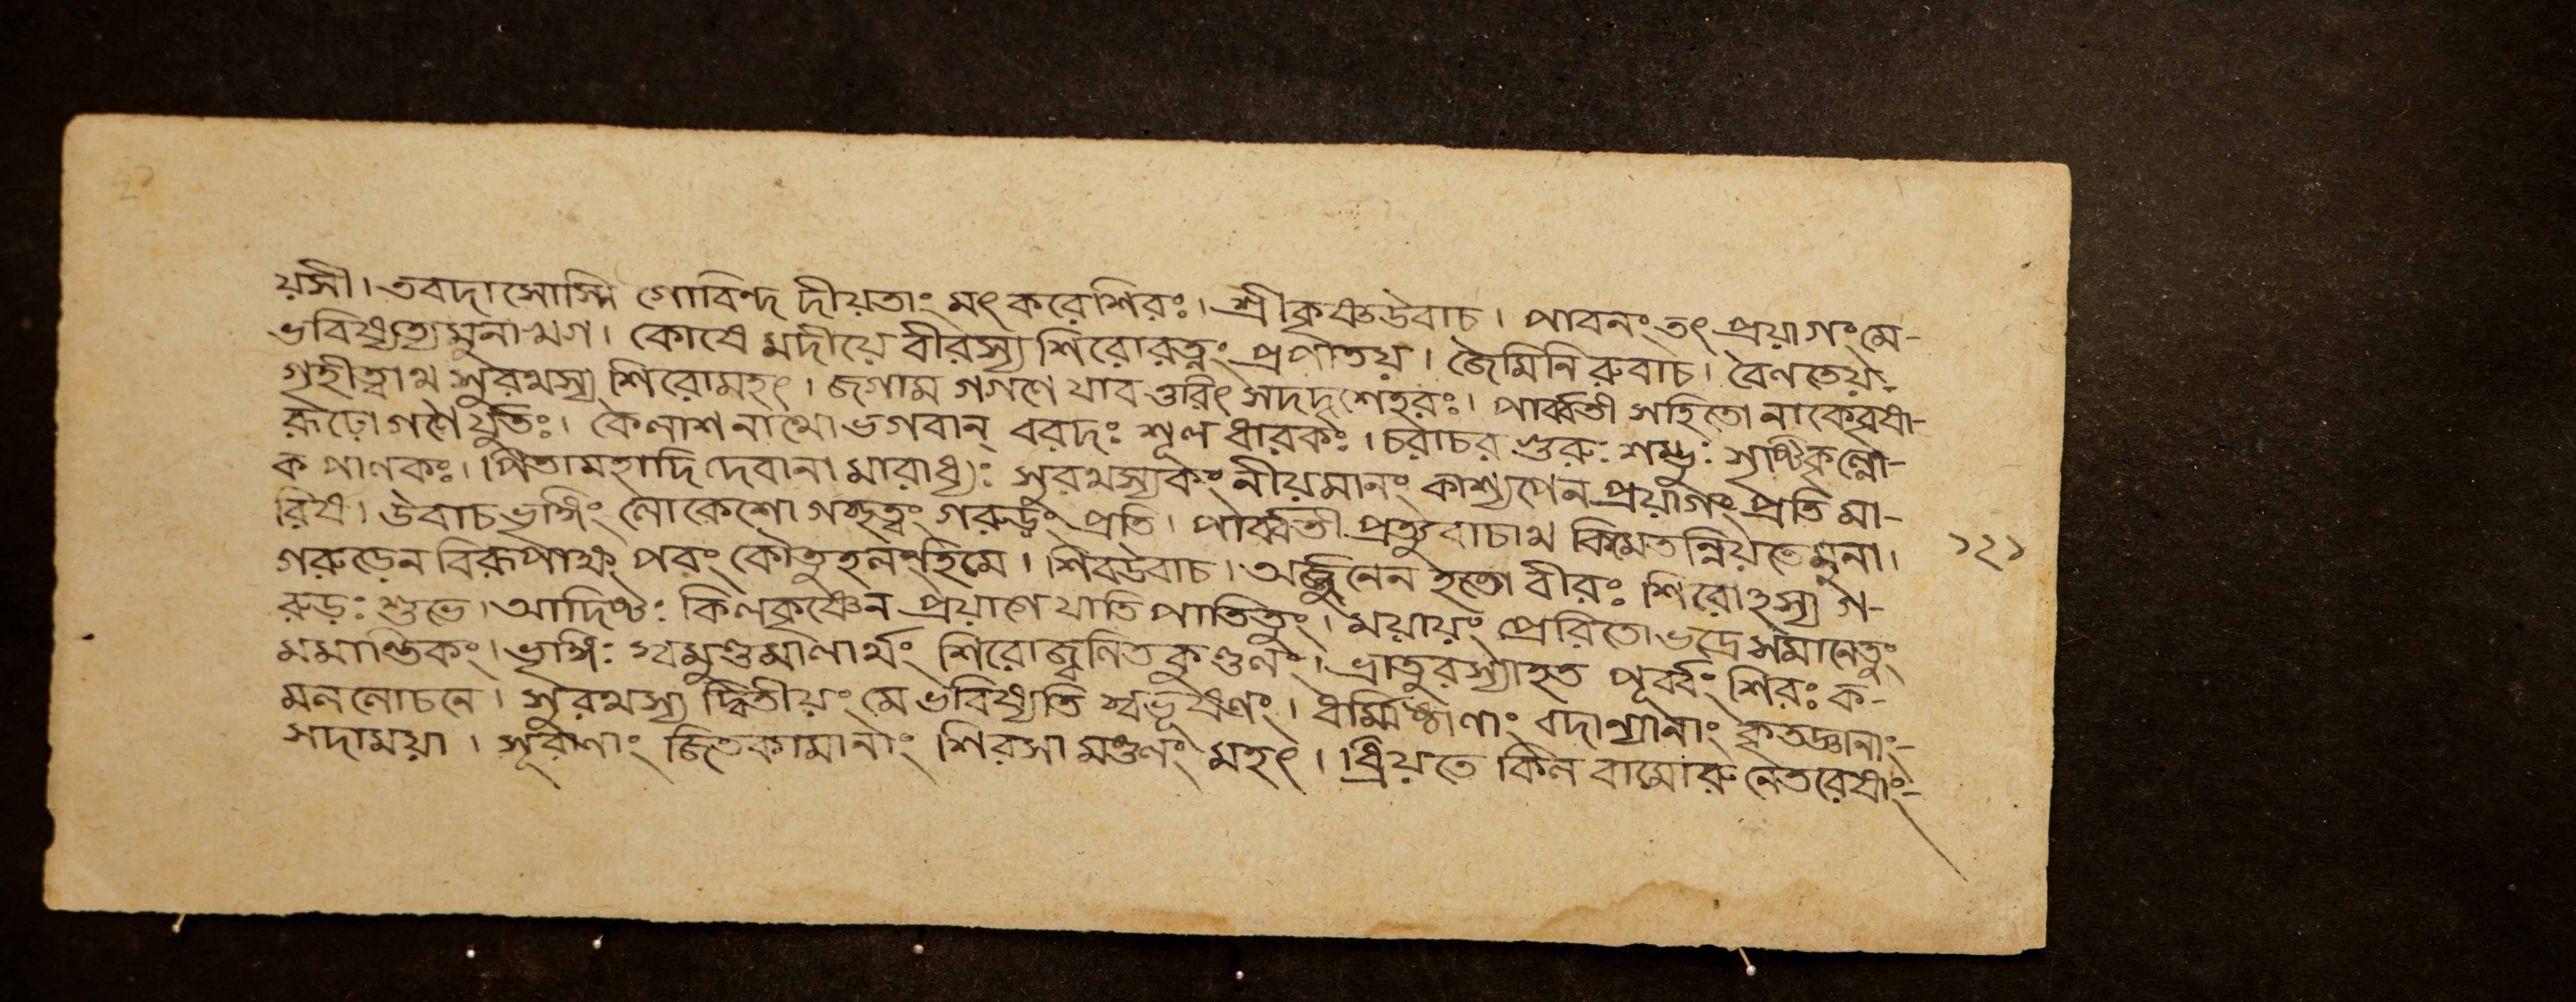 য়সী। তবদাসোস্মি গোবিন্দ দীয়তাং মৎ করেশিরঃ। শ্রীকৃষ্ণউবাচ। পাবনং তৎ প্রয়াগং মে-
ভবিষ্যত্যমুনা খগ। কোষে মদীয়ে বীরস্য শিরোরত্নং প্রণীতয়। জৈমিনি রুবাচ। বৈণতেয়-
গৃহীত্বাথ সুরথস্য শিরোমহৎ। জগাম গগণে যাব ত্তরিৎ সদদৃশেহরঃ। পার্ব্বতী সহিতো নাকেবৃষা-
রূঢ়ো গণৈর্যুতঃ। কৈলাশ নাথো ভগবান্ বরদঃ শূল ধারকঃ। চরাচর গুরুঃ শম্ভুঃ সৃষ্টিকৃল্লো-
ক পালকঃ। পিতামহাদি দেবানা মারাধ্যঃ সুরথস্যকং নীয়মানং কাশ্যপেন প্রয়াগং প্রতি মা-
রিষ। উবাচ ভৃঙ্গিং লোকেশো গচ্ছত্বং গরুড়ং প্রতি। পার্ব্বতী প্রত্যুবাচাথ কিমেত ন্নিয়তেমুনা।
গরুড়েন বিরূপাক্ষ পরং কৌতুহলংহিমে। শিবউবাচ। অর্জ্জুনেন হতো বীরঃ শিরোহস্য গ-
রুড়ঃ শুভে। আদিষ্টঃ কিলকৃষ্ণেন প্রয়াগে যাতি পাতিতুং। ময়ায়ং প্রেরিতো ভদ্রে সমানেতুং
মমান্তিকং। ভৃঙ্গিঃ স্বমুণ্ডমালার্থং শিরোজ্বলিত কুণ্ডলং। ভ্রাতুরস্যাহৃত পূর্ব্বং শিরঃ ক-
মললোচনে। সুরথস্য দ্বিতীয়ং মে ভবিষ্যতি স্বভূষণং। ধর্ম্মিষ্ঠাণাং বদান্যানাং কৃতজ্ঞানাং-
সদাময়া। সূরাণাং জিতকামানাং শিরসা মণ্ডলং মহৎ। ধ্রিয়তে কিল বামোরু নেতরেষাং-
১২১